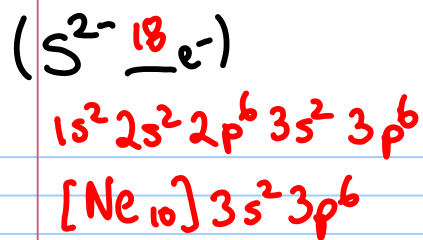 (S²⁻ 18 e⁻)
1s² 2s² 2p⁶ 3s² 3p⁶
[Ne₁₀] 3s² 3p⁶